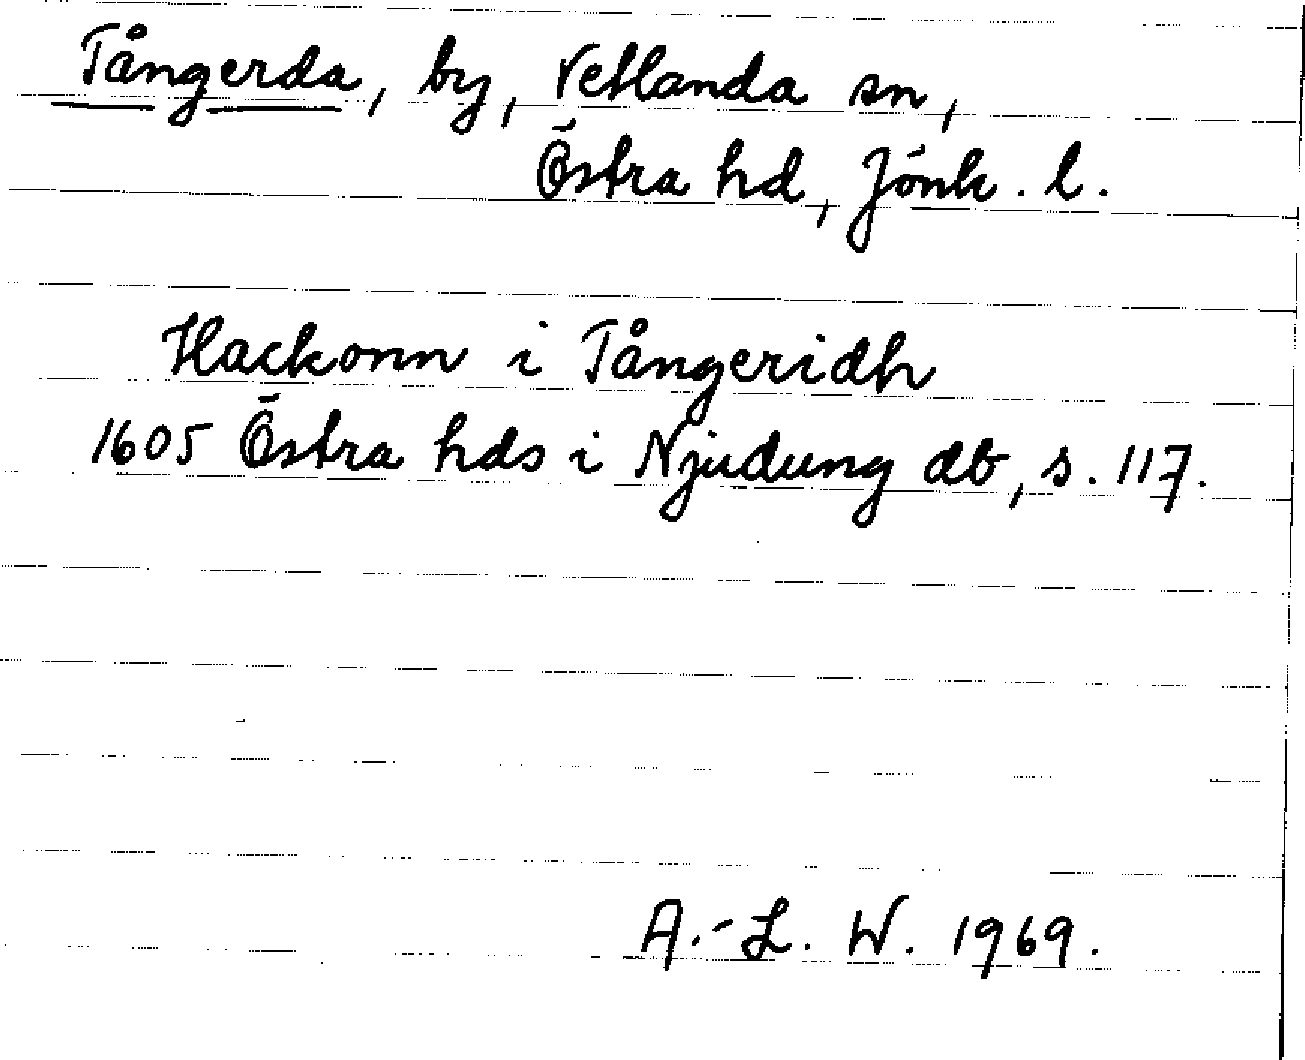 Tångerda, by, Vetlanda sn,
Östra hd, Jönk. l.
Hackonn i Tångeridh
1605 Östra hds i Njudung db, s. 117.
A.-L. W. 1969.